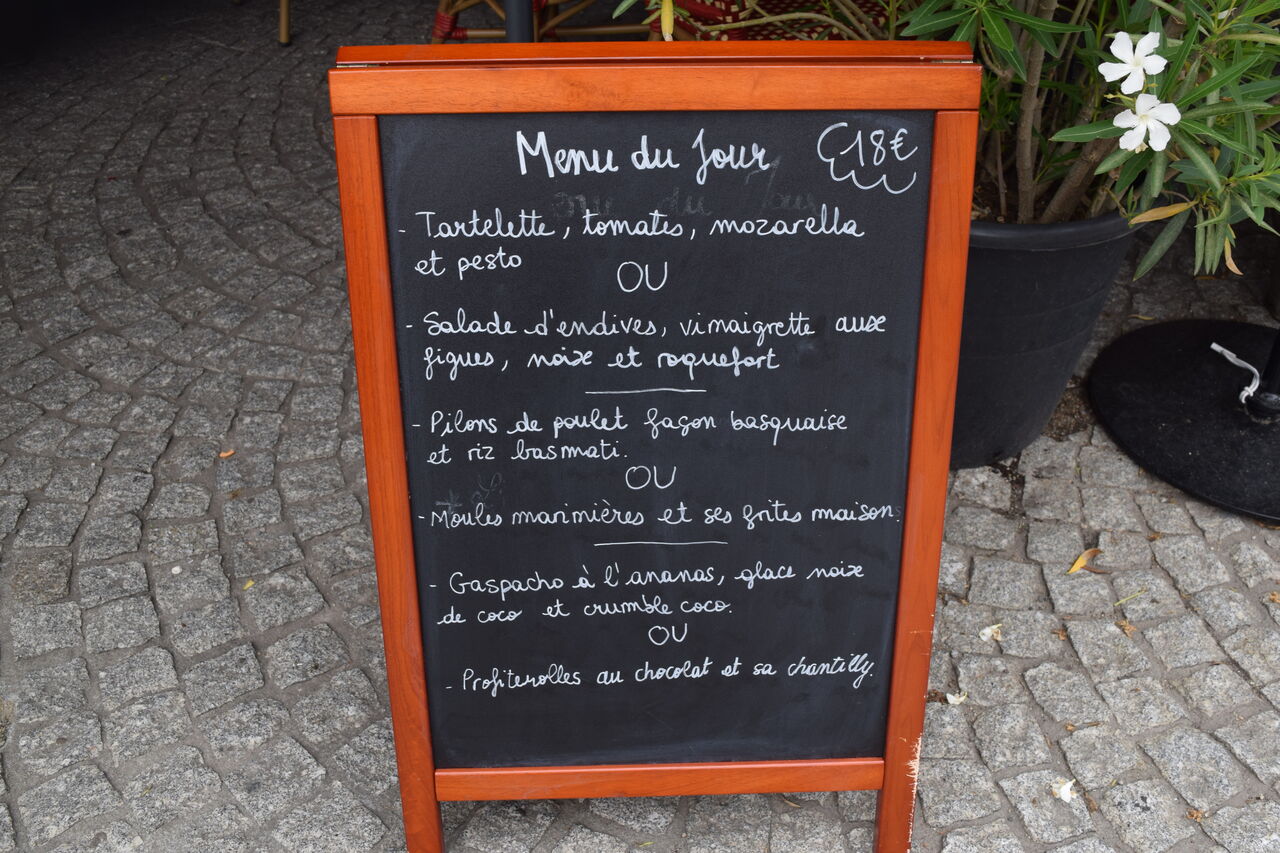 Menu du Jour 18€
- Tartelette, tomates, mozarella
et pesto
OU
- Salade d'endives, vinaigrette aux
figues, noix et roquefort
- Pilons de poulet façon basquaise
et riz basmati.
OU
- Moules marinières et ses frites maison.
- Gaspacho à l'ananas, glace noix
de coco et crumble coco.
OU
- Profiterolles au chocolat et sa chantilly.